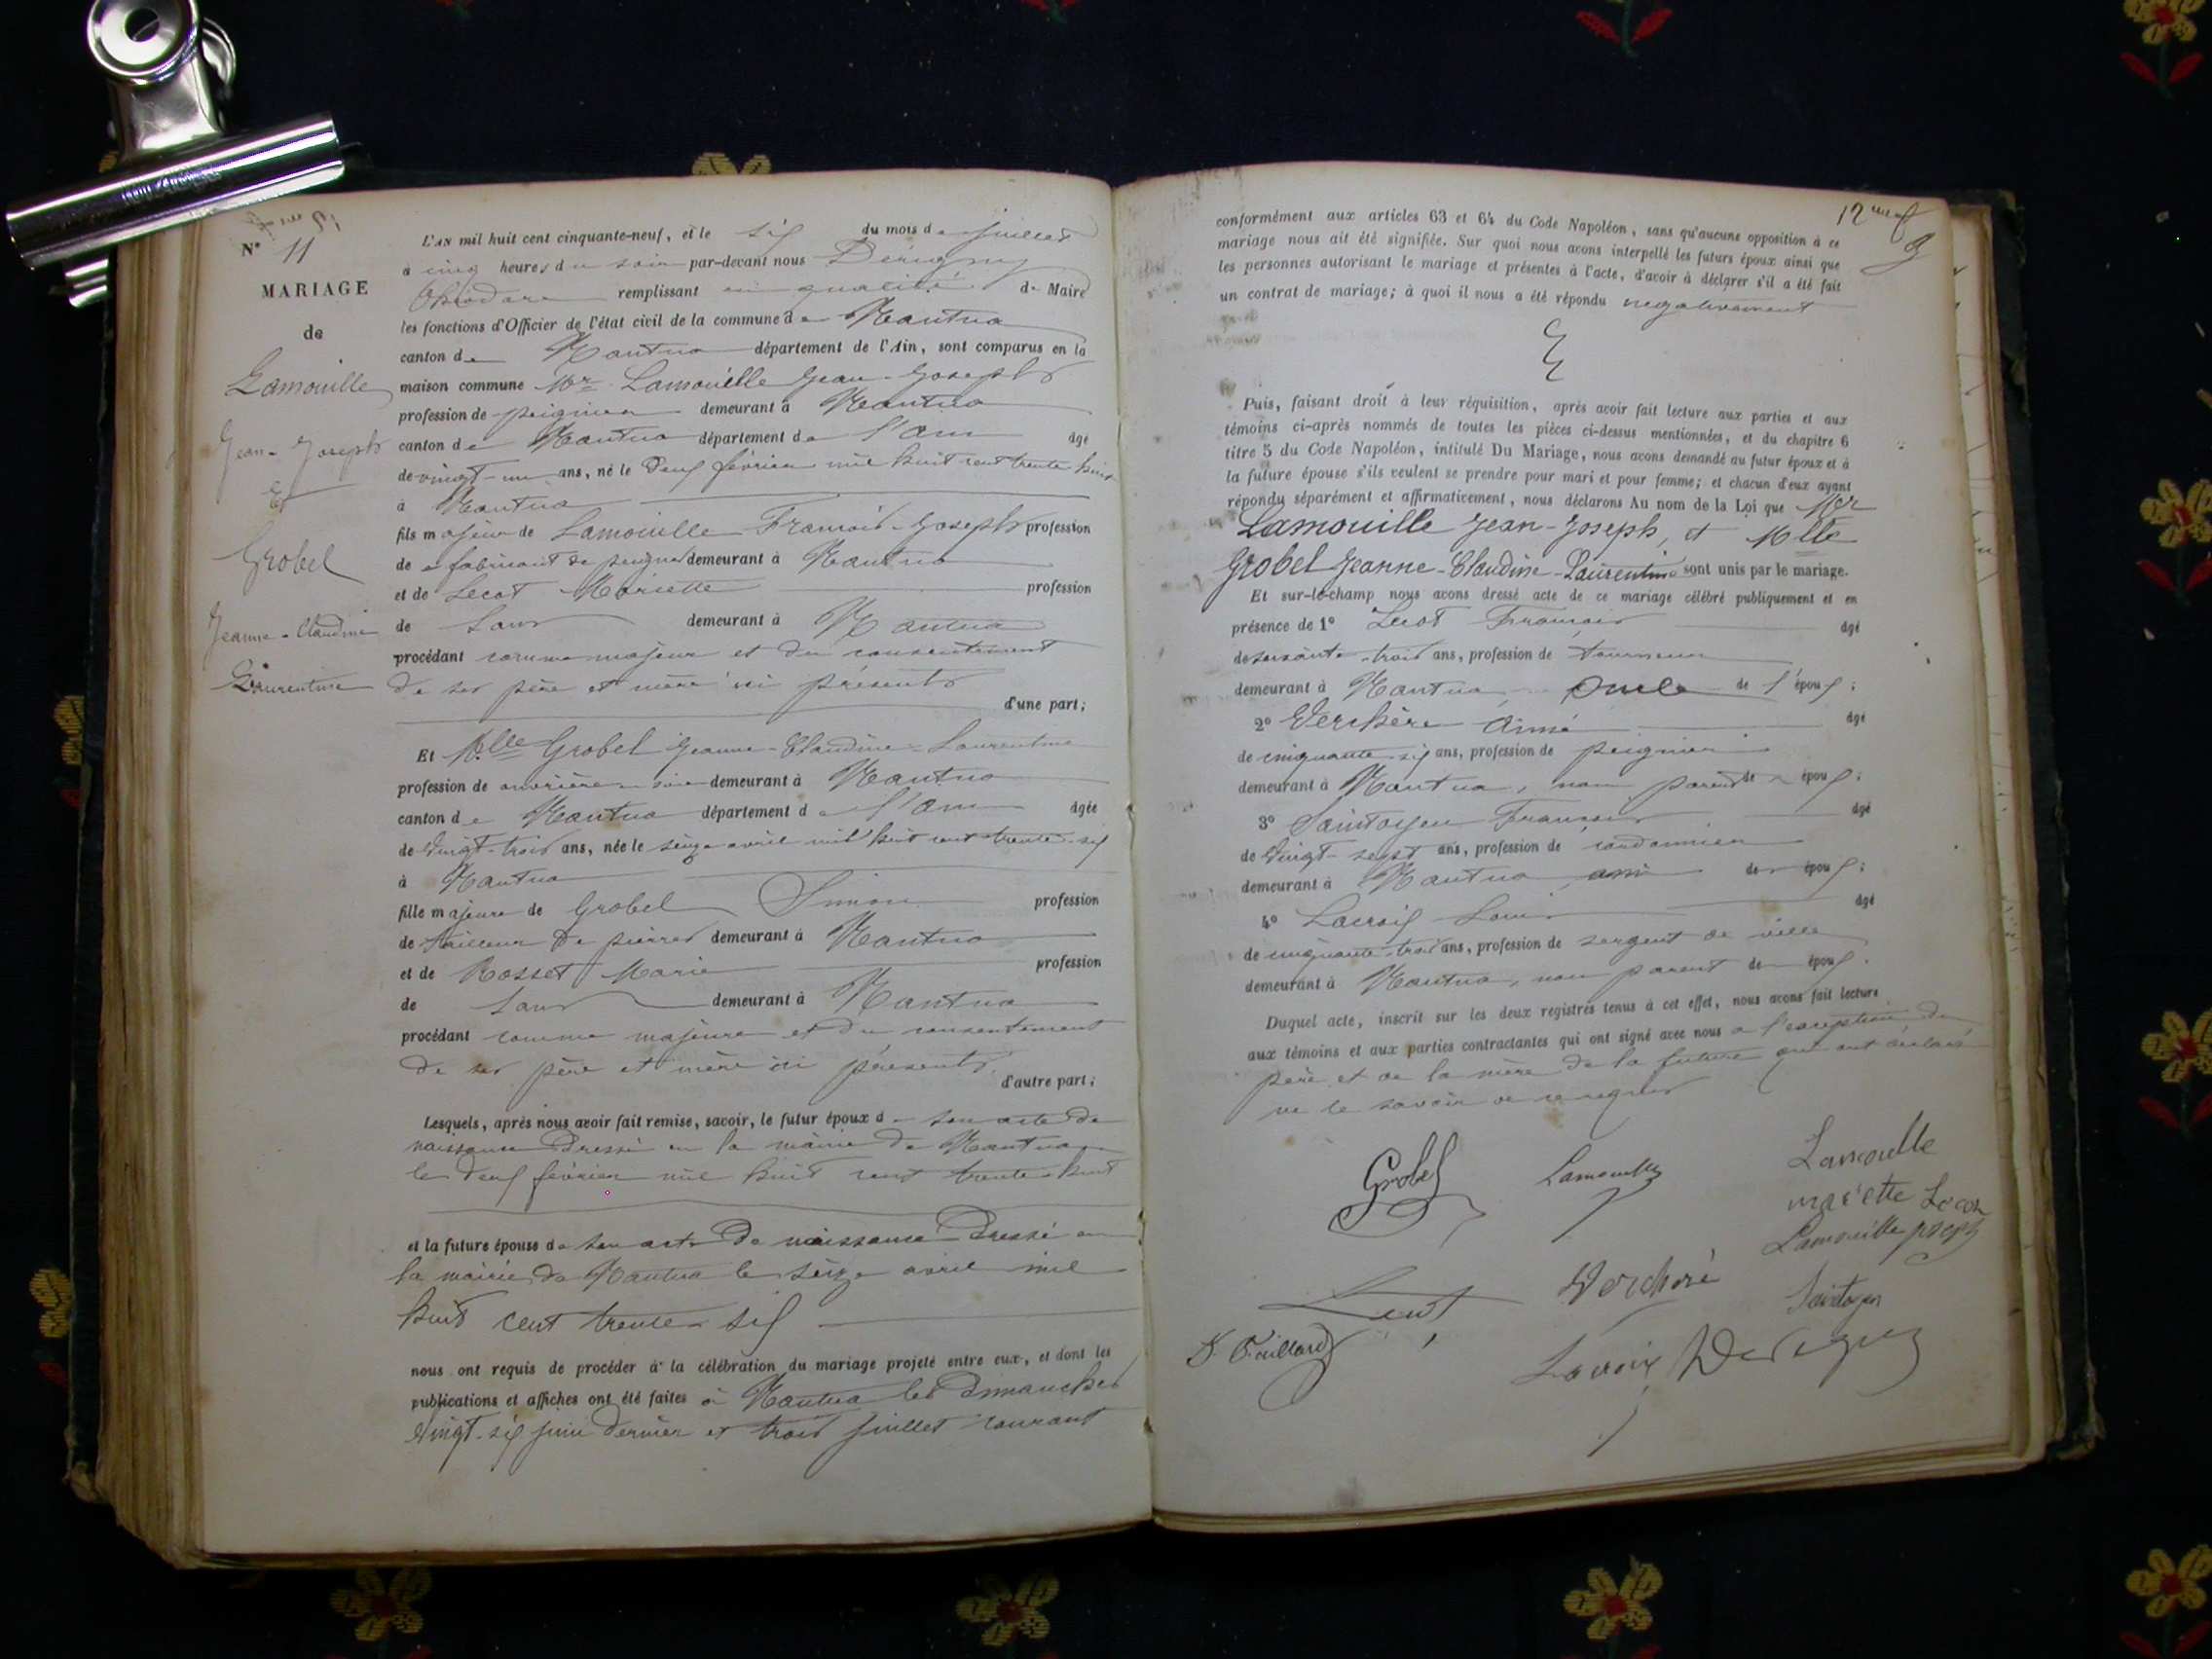 N° 11
MARIAGE
de
Lamouille
Jean-Joseph
Et
Grobel
Jeanne-Claudine
Laurentine
L'AN mil huit cent cinquante-neuf, et le six du mois de juillet
à cinq heures du soir par-devant nous Dérigny
Théodore remplissant en qualité de Maire
les fonctions d'Officier de l'état civil de la commune de Nantua
canton de Nantua département de l'Ain, sont comparus en la
maison commune Mr Lamouille Jean-Joseph
profession de peignier demeurant à Nantua
canton de Nantua département de l'Ain âgé
de vingt-un ans, né le deux février mil huit cent trente huit
à Nantua
fils majeur de Lamouille François-Joseph profession
de fabricant de peignes demeurant à Nantua
et de Lecot Mariette profession
de sans demeurant à Nantua
procédant comme majeur et du consentement
de ses père et mère ici présents
d'une part;
Et Melle Grobel Jeanne-Claudine-Laurentine
profession de ouvrière en soie demeurant à Nantua
canton de Nantua département de l'Ain âgée
de vingt-trois ans, née le seize avril mil huit cent trente-six
à Nantua
fille majeure de Grobel Simon profession
de tailleur de pierres demeurant à Nantua
et de Rosset Marie profession
de sans demeurant à Nantua
procédant comme majeure et du consentement
de ses père et mère ici présents
d'autre part;
Lesquels, après nous avoir fait remise, savoir, le futur époux de son acte de
naissance dressé en la mairie de Nantua
le deux février mil huit cent trente-huit
et la future épouse de son acte de naissance dressé en
la mairie de Nantua le seize avril mil
huit cent trente-six
nous ont requis de procéder à la célébration du mariage projeté entre eux, et dont les
publications et affiches ont été faites à Nantua les dimanches
vingt-six juin dernier et trois juillet courant
12
conformément aux articles 63 et 64 du Code Napoléon, sans qu'aucune opposition à ce
mariage nous ait été signifiée. Sur quoi nous avons interpellé les futurs époux ainsi que
les personnes autorisant le mariage et présentes à l'acte, d'avoir à déclarer s'il a été fait
un contrat de mariage; à quoi il nous a été répondu négativement
Puis, faisant droit à leur réquisition, après avoir fait lecture aux parties et aux
témoins ci-après nommés de toutes les pièces ci-dessus mentionnées, et du chapitre 6
titre 5 du Code Napoléon, intitulé Du Mariage, nous avons demandé au futur époux et à
la future épouse s'ils veulent se prendre pour mari et pour femme; et chacun d'eux ayant
répondu séparément et affirmativement, nous déclarons Au nom de la Loi que Mr
Lamouille Jean-Joseph, et Melle
Grobel Jeanne-Claudine-Laurentine sont unis par le mariage.
Et sur-le-champ nous avons dressé acte de ce mariage célébré publiquement et en
présence de 1° Lecot François âgé
de soixante-trois ans, profession de tourneur
demeurant à Nantua, oncle de l'époux;
2° Verchère Aimé âgé
de cinquante-six ans, profession de peignier
demeurant à Nantua, non parent des époux;
3° Saintoyen François âgé
de vingt-sept ans, profession de cordonnier
demeurant à Nantua ami des époux;
4° Lacroix Louis âgé
de cinquante-trois ans, profession de sergent de ville
demeurant à Nantua, non parent des époux.
Duquel acte, inscrit sur les deux registres tenus à cet effet, nous avons fait lecture
aux témoins et aux parties contractantes qui ont signé avec nous à l'exception du
père et de la mère de la future qui ont déclaré
ne le savoir de ce requis
Grobel Lamouille Lamouille
mariette Lecot
Lamouille joseph
Lecot Verchere Saintoyen
Lacroix Derigny